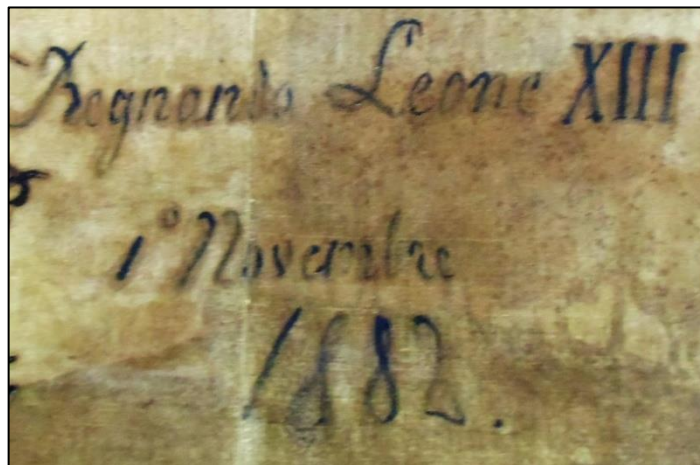 Regnando Leone XIII
1º Novembre
1882.